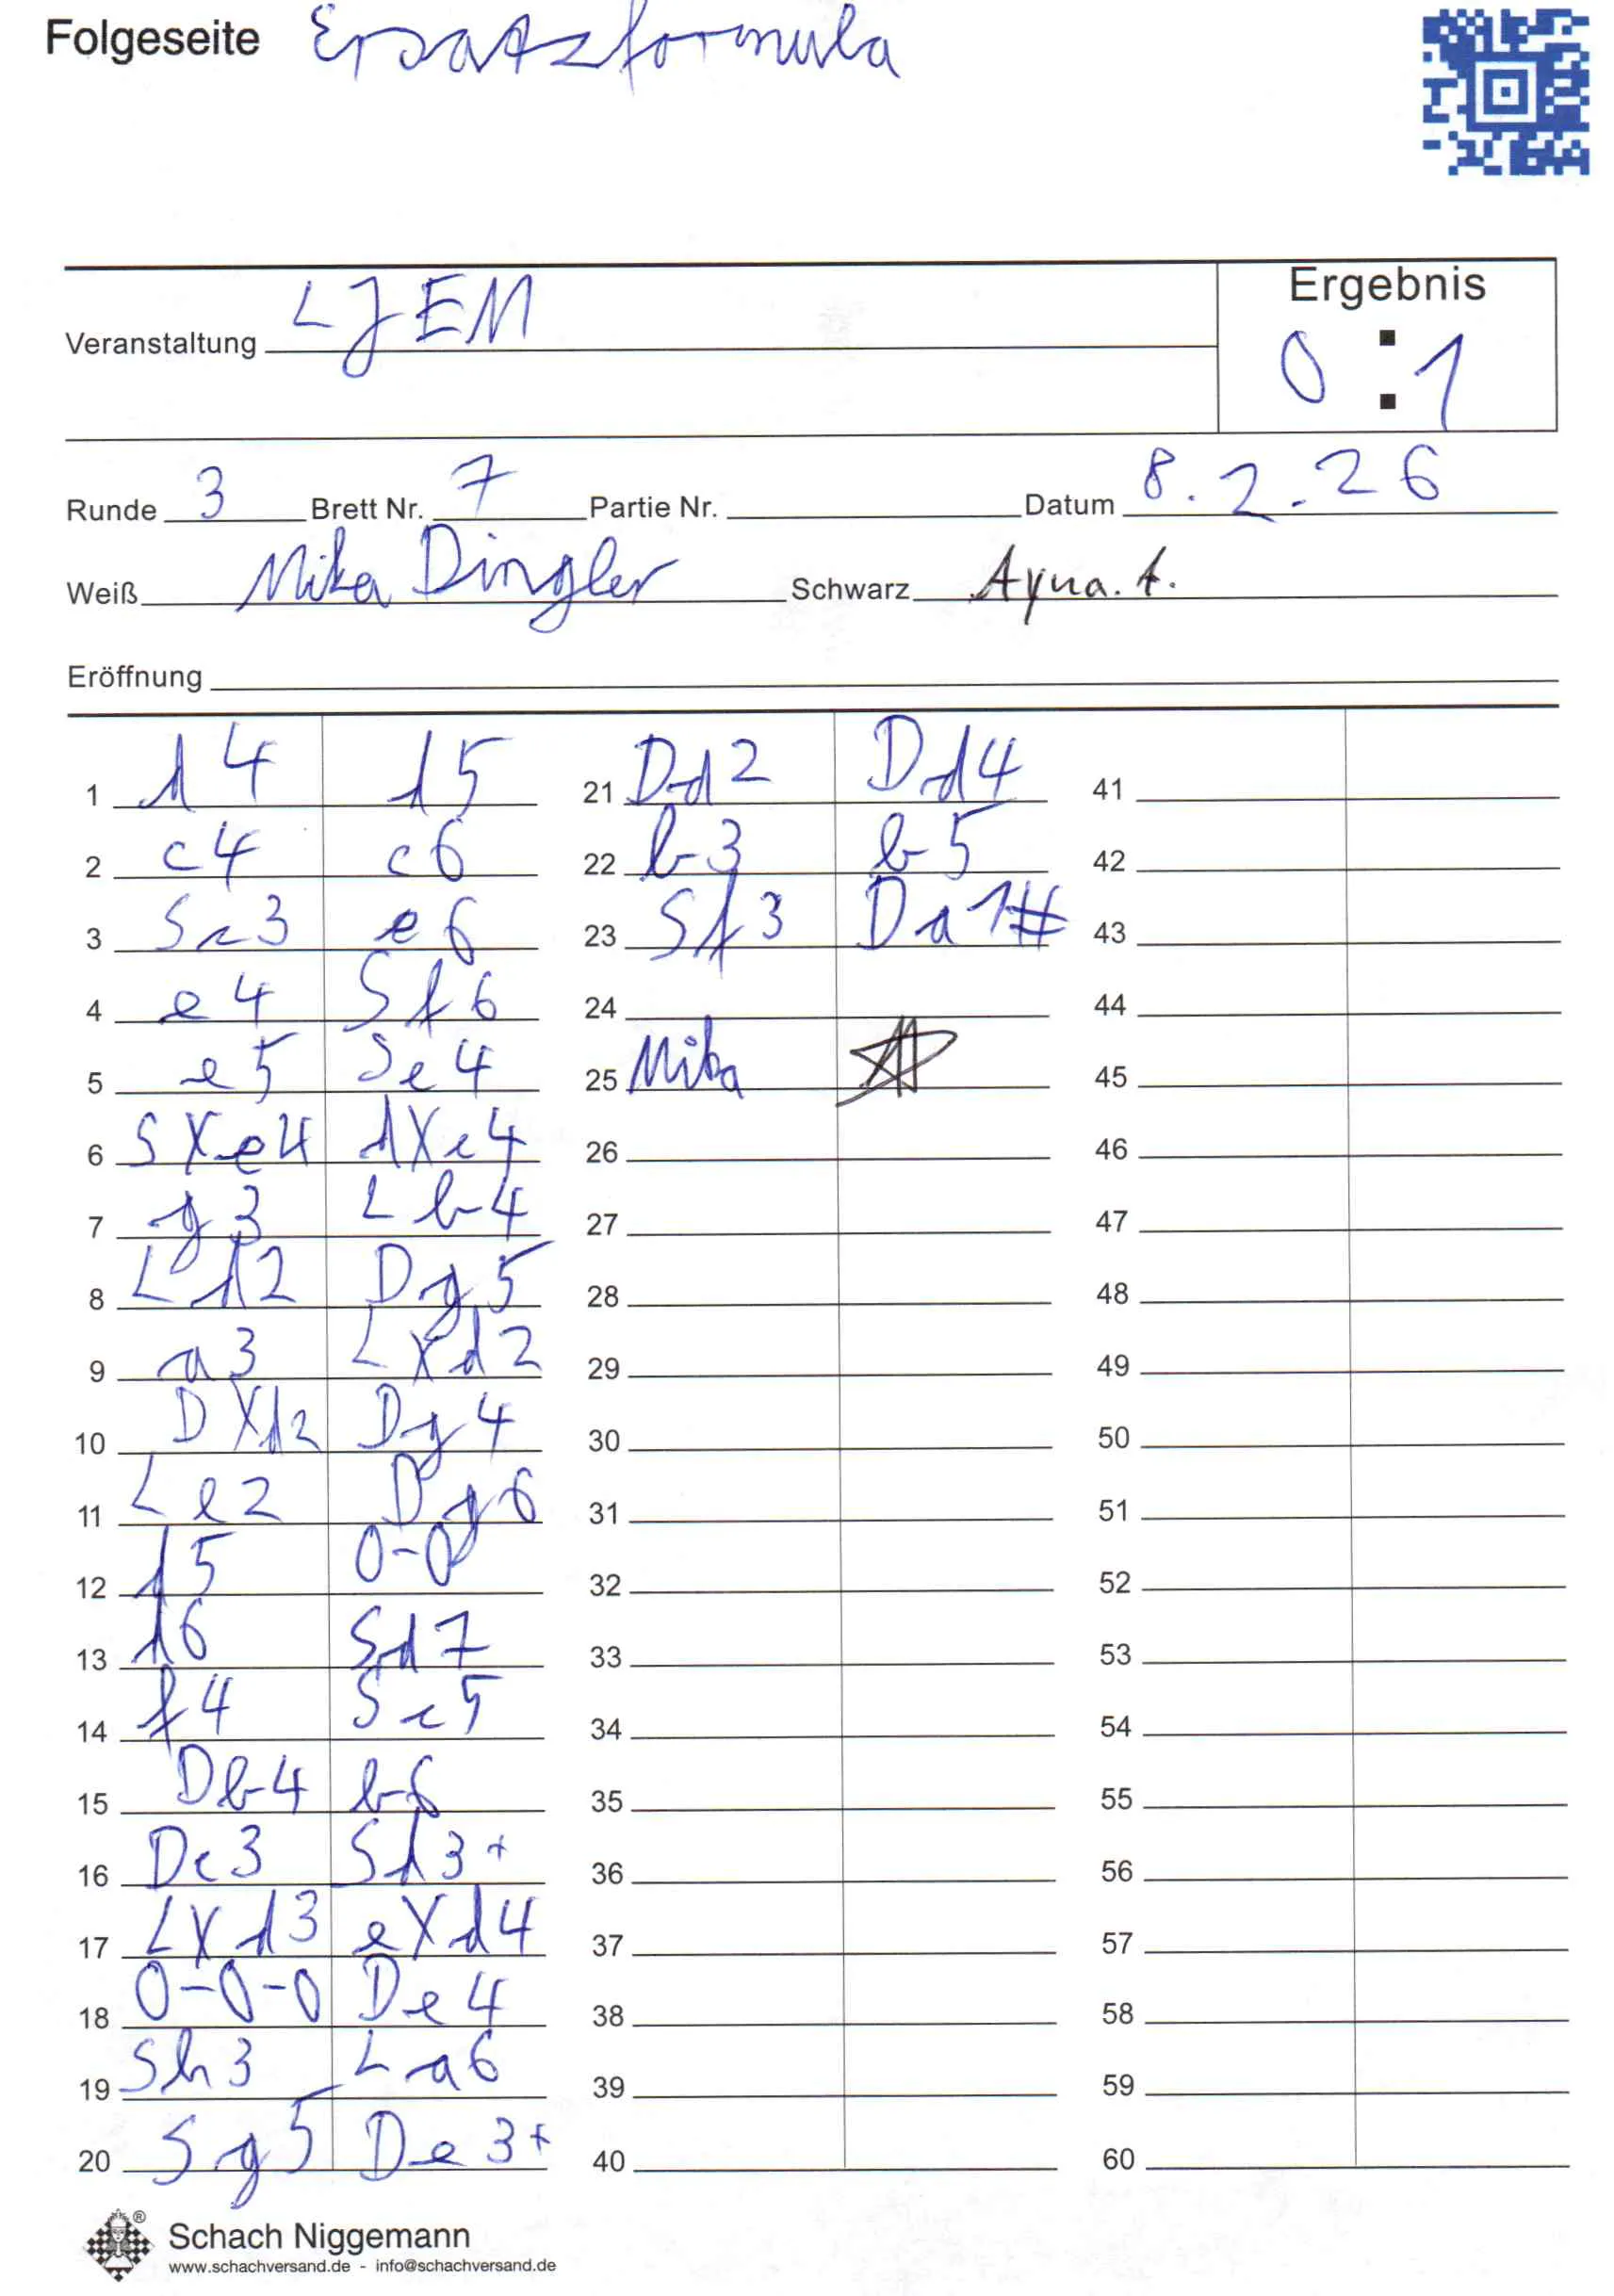 Folgeseite Ersatzformula
Ergebnis
Veranstaltung LJEM
0 : 1
Runde 3 Brett Nr. 7 Partie Nr. Datum 8.2.26
Weiß Mika Dingler Schwarz Ayna. A.
Eröffnung
1 d4 d5 21 Dd2 Dd4 41
2 c4 c6 22 b3 b5 42
3 Sc3 e6 23 Sf3 Da1# 43
4 e4 Sf6 24 44
5 e5 Se4 25 Mika 45
6 SXe4 dXe4 26 46
7 g3 Lb4 27 47
8 Ld2 Dg5 28 48
9 a3 LXd2 29 49
10 DXd2 Dg4 30 50
11 Le2 Dg6 31 51
12 d5 0-0 32 52
13 d6 Sd7 33 53
14 f4 Sc5 34 54
15 Db4 b6 35 55
16 Dc3 Sd3+ 36 56
17 LXd3 eXd4 37 57
18 0-0-0 De4 38 58
19 Sh3 La6 39 59
20 Sg5 De3+ 40 60
Schach Niggemann ®
www.schachversand.de - info@schachversand.de